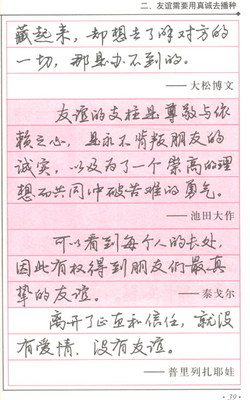 二、友谊需要用真诚去播种
藏起来，却想去了解对方的
一切，那是办不到的。
——大松博文
友谊的支柱是尊敬与依
赖之心，是永不背叛朋友的
诚实，以及为了一个崇高的理
想而共同冲破苦难的勇气。
——池田大作
可以看到每个人的长处，
因此有权得到朋友们最真
挚的友谊。
——泰戈尔
离开了正直和信任，就没
有爱情，没有友谊。
——普里列扎耶娃
·39·